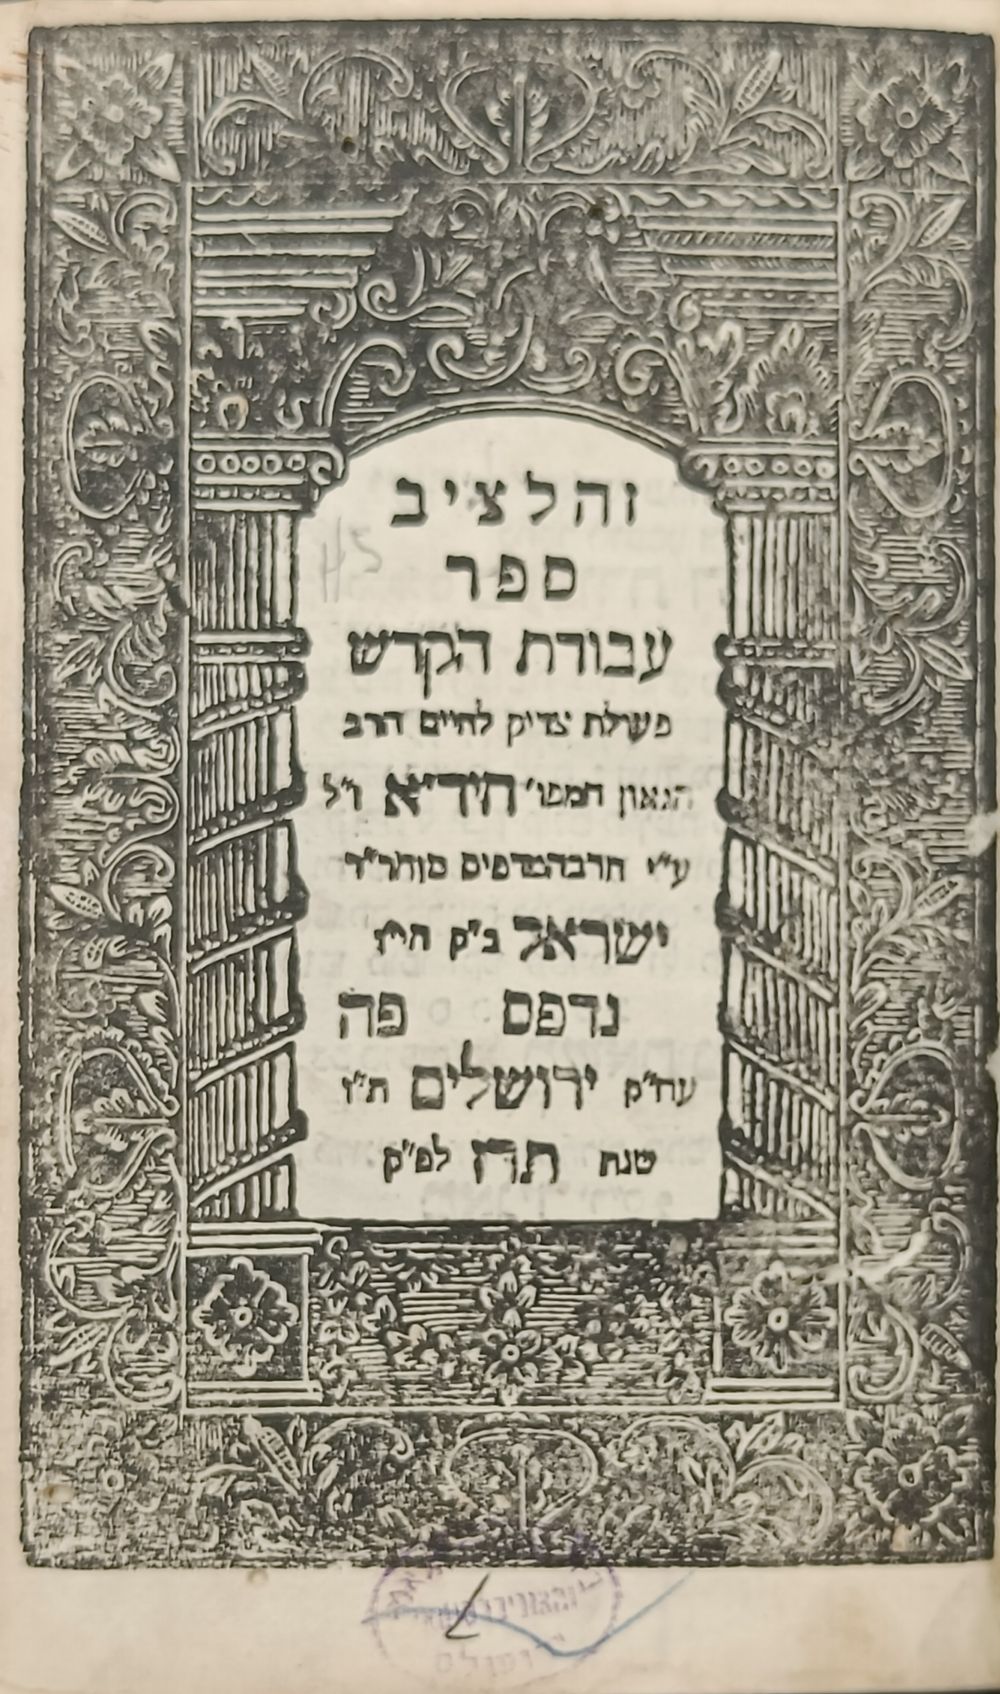 זהלציב
ספר
עבודת הקדש
פעולת צדיק לחיים הרב
הגאון המפו׳ חיד״א ז״ל
ע״י הרבהמדפיס מוהר״ר
ישראל ב״ק הי״ו
נדפס פה
עה״ק ירושלים ת״ו
שנת תרח לפ״ק